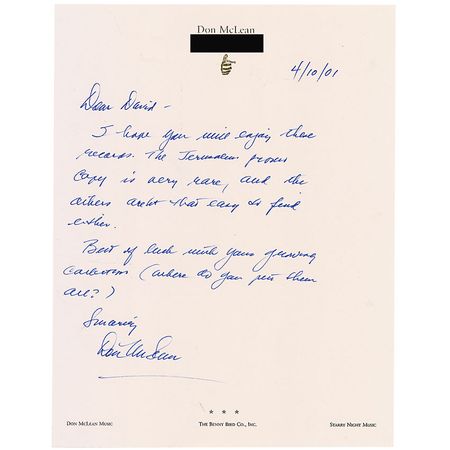 Don McLean
4/10/01
Dear David –
I hope you will enjoy these
records. The Jerusalem promo
copy is very rare, and the
others aren't that easy to find
either.
Best of luck with your growing
collections (where do you put them
all?)
Sincerely
Don McLean
* * *
DON MCLEAN MUSIC
THE BENNY BIRD CO., INC.
STARRY NIGHT MUSIC